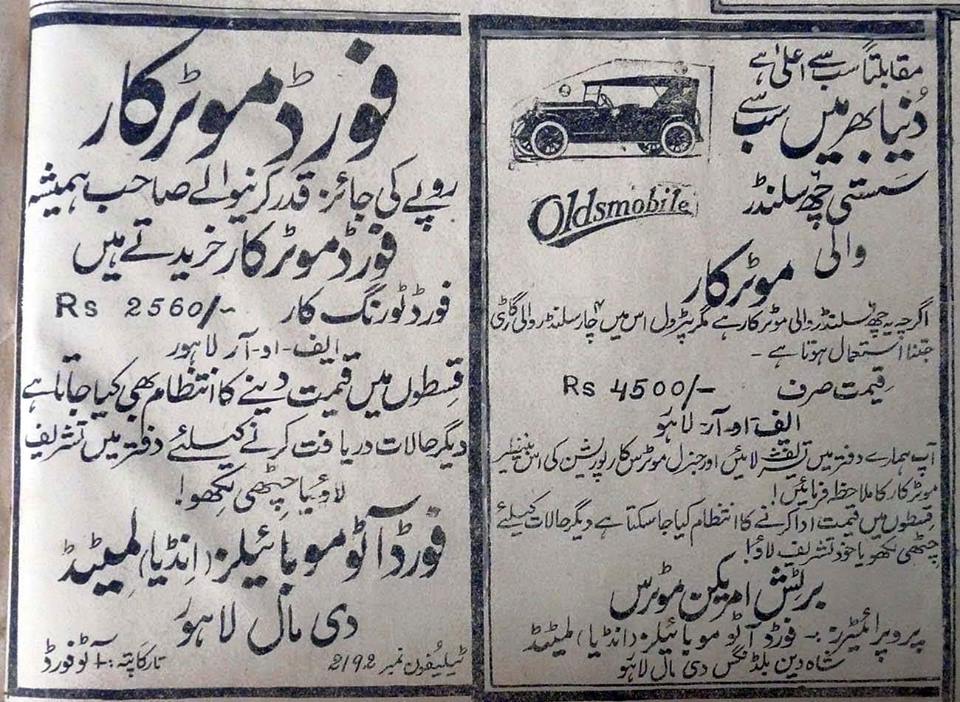 مقابلتاً سب سے اعلیٰ ہے
دُنیا بھر میں سب سے
سستی چھ سلنڈر
والی
موٹر کار
Oldsmobile
اگرچہ یہ چھ سلنڈر والی موٹر کار ہے مگر پٹرول اس میں ۴ چار سلنڈر والی گاڑی
جتنا استعمال ہوتا ہے -
قیمت صرف Rs 4500/-
الف - او - آر - لاہو
آپ ہمارے دفتر میں تشریف لائیں اور جنرل موٹرس کارپوریشن کی اس بینظیر
موٹر کار کا ملاحظہ فرمائیں!
قسطوں میں قیمت ادا کرنے کا انتظام کیا جا سکتا ہے دیگر حالات کیلئے
چٹھی لکھو یا خود تشریف لاوٴ!
برٹش امریکن موٹرس
پروپرائیٹرز :- فورڈ آٹو موبائیلز (انڈیا) لمیٹڈ
شاہ دین بلڈنگس دی مال لاہو
فورڈ موٹر کار
روپے کی جائز قدر کرنیوالے صاحب ہمیشہ
فورڈ موٹر کار خریدتے ہیں
فورڈ ٹورنگ کار Rs 2560/-
ایف - او - آر لاہور
قسطوں میں قیمت دینے کا انتظام بھی کیا جاتا ہے
دیگر حالات دریافت کرنے کیلئے دفتر میں تشریف
لاوٴ یا چٹھی لکھو!
فورڈ آٹو موبائیلز (انڈیا) لمیٹڈ
دی مال لاہور
ٹیلیفون نمبر 2192 تار کا پتہ :- آٹو فورڈ